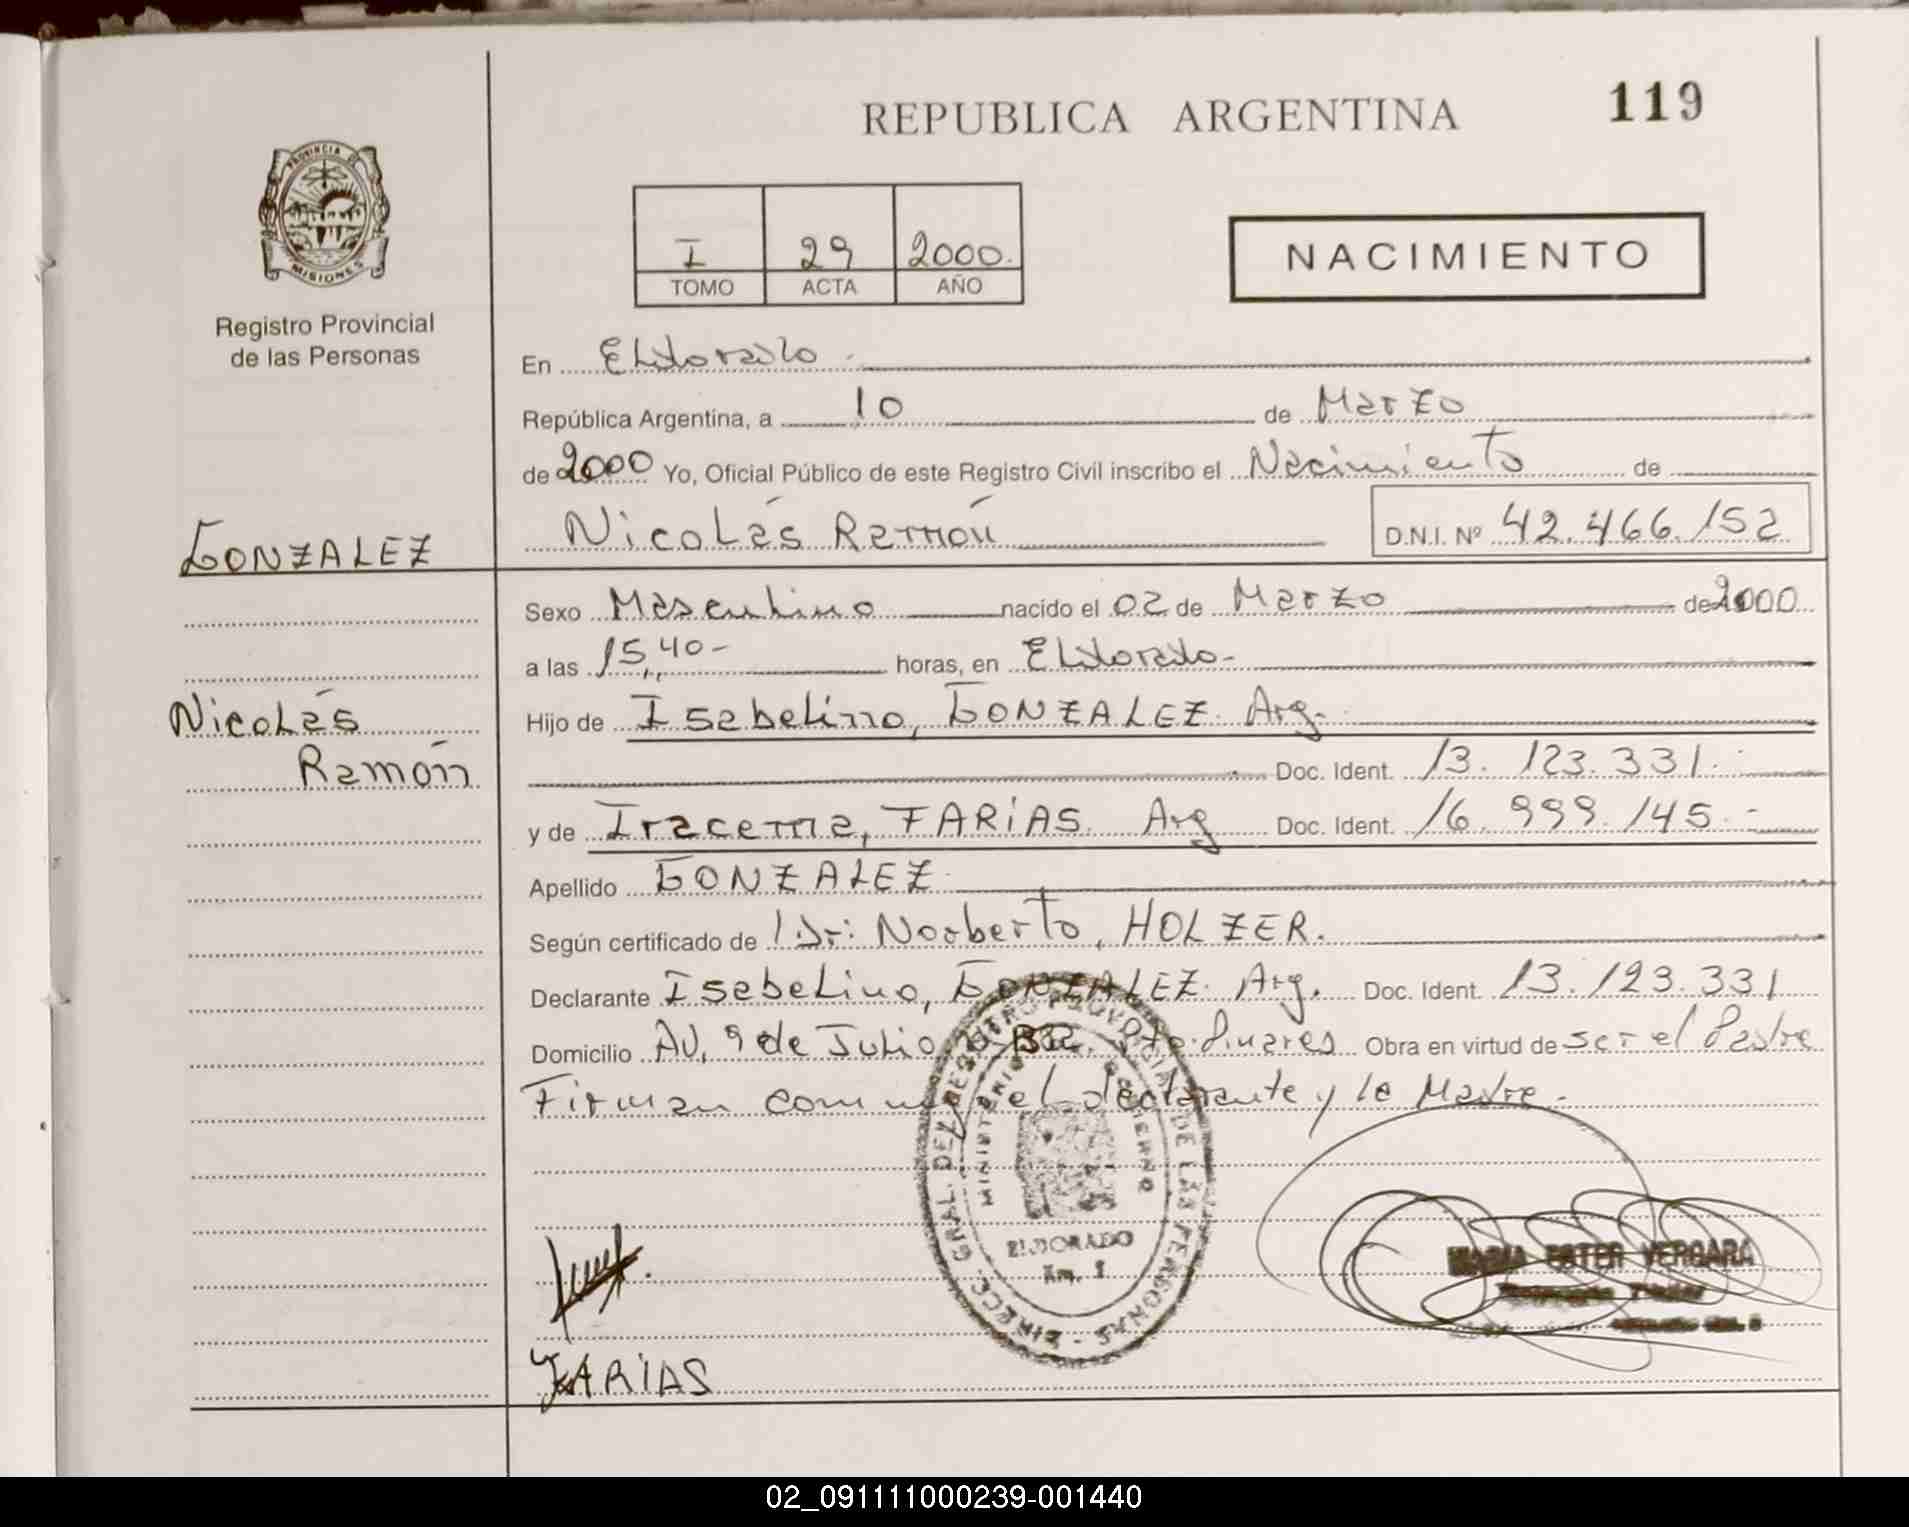 REPUBLICA ARGENTINA
119
PROVINCIA DE
MISIONES
Registro Provincial
de las Personas
I 29 2000.
TOMO ACTA AÑO
NACIMIENTO
En Eldorado.
República Argentina, a 10 de Marzo
de 2000 Yo, Oficial Público de este Registro Civil inscribo el Nacimiento de
GONZALEZ
Nicolás Ramón D.N.I. Nº 42.466.152
Sexo Masculino nacido el 02 de Marzo de 2000
a las 15,40- horas, en Eldorado-
Nicolás
Ramón
Hijo de Isabelino, GONZALEZ. Arg.
Doc. Ident. 13.123.331.
y de Iracema, FARIAS. Arg Doc. Ident. 16.999.145.-
Apellido GONZALEZ.
Según certificado de Dr: Norberto, HOLZER.
Declarante Isabelino, GONZALEZ. Arg. Doc. Ident. 13.123.331
Domicilio AV, 9 de Julio Pinares Obra en virtud de ser el Padre
Firman el declarante y la Madre.
DIRECC. GRAL. DEL REGISTRO PROVINCIAL DE LAS PERSONAS
MINISTERIO GOBIERNO
ELDORADO
Km.
MARIA ESTER VERGARA
FARIAS
02_091111000239-001440